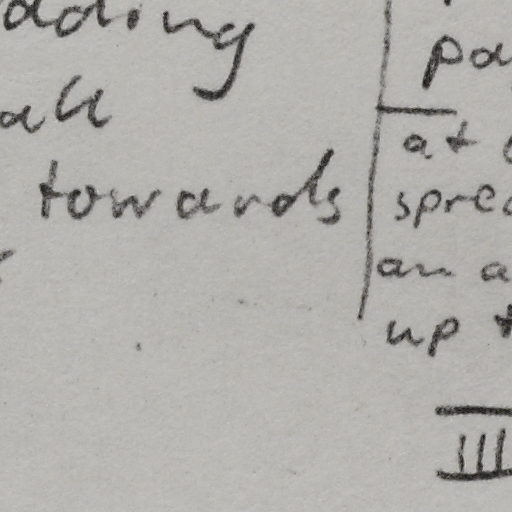 adding
all
towards
pa
at
spre
an a
up t
III